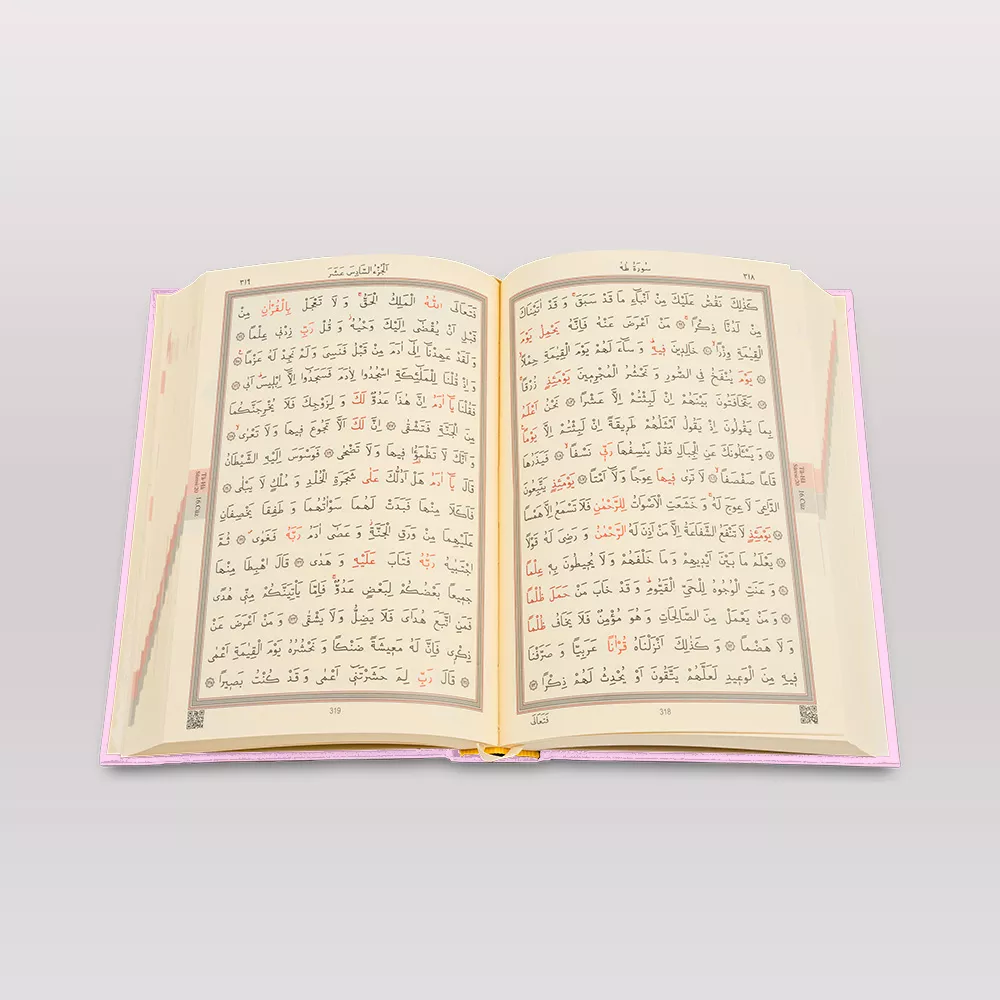 ٣١٨ سُورَةُ طٰهٰ
كَذٰلِكَ نَقُصُّ عَلَيْكَ مِنْ اَنْبَٓاءِ مَا قَدْ سَبَقَۚ وَقَدْ اٰتَيْنَاكَ
مِنْ لَدُنَّا ذِكْرًاۚ ۝ مَنْ اَعْرَضَ عَنْهُ فَاِنَّهُ يَحْمِلُ يَوْمَ
الْقِيٰمَةِ وِزْرًاۙ ۝ خَالِدِينَ فِيهِۜ وَسَٓاءَ لَهُمْ يَوْمَ الْقِيٰمَةِ حِمْلًاۙ
۝ يَوْمَ يُنْفَخُ فِي الصُّورِ وَنَحْشُرُ الْمُجْرِمِينَ يَوْمَئِذٍ زُرْقًاۚ
۝ يَتَخَافَتُونَ بَيْنَهُمْ اِنْ لَبِثْتُمْ اِلَّا عَشْرًا ۝ نَحْنُ اَعْلَمُ
بِمَا يَقُولُونَ اِذْ يَقُولُ اَمْثَلُهُمْ طَرِيقَةً اِنْ لَبِثْتُمْ اِلَّا يَوْمًا۟
۝ وَيَسْـَٔلُونَكَ عَنِ الْجِبَالِ فَقُلْ يَنْسِفُهَا رَبِّي نَسْفًاۙ ۝ فَيَذَرُهَا
قَاعًا صَفْصَفًاۙ ۝ لَا تَرٰى فِيهَا عِوَجًا وَلَٓا اَمْتًاۜ ۝ يَوْمَئِذٍ يَتَّبِعُونَ
الدَّاعِيَ لَا عِوَجَ لَهُۚ وَخَشَعَتِ الْاَصْوَاتُ لِلرَّحْمٰنِ فَلَا تَسْمَعُ اِلَّا هَمْسًا
۝ يَوْمَئِذٍ لَا تَنْفَعُ الشَّفَاعَةُ اِلَّا مَنْ اَذِنَ لَهُ الرَّحْمٰنُ وَرَضِيَ لَهُ قَوْلًا
۝ يَعْلَمُ مَا بَيْنَ اَيْدِيهِمْ وَمَا خَلْفَهُمْ وَلَا يُحِيطُونَ بِهِ عِلْمًا
۝ وَعَنَتِ الْوُجُوهُ لِلْحَيِّ الْقَيُّومِۜ وَقَدْ خَابَ مَنْ حَمَلَ ظُلْمًا
۝ وَمَنْ يَعْمَلْ مِنَ الصَّالِحَاتِ وَهُوَ مُؤْمِنٌ فَلَا يَخَافُ ظُلْمًا
وَلَا هَضْمًا ۝ وَكَذٰلِكَ اَنْزَلْنَاهُ قُرْاٰنًا عَرَبِيًّا وَصَرَّفْنَا
فِيهِ مِنَ الْوَعِيدِ لَعَلَّهُمْ يَتَّقُونَ اَوْ يُحْدِثُ لَهُمْ ذِكْرًا ۝
318
فَتَعَالَى
Tâ-Hâ
Sûresi:20
16.Cüz
٣١٩ اَلْجُزْءُ السَّادِسَ عَشَرَ
فَتَعَالَى اللّٰهُ الْمَلِكُ الْحَقُّۚ وَلَا تَعْجَلْ بِالْقُرْاٰنِ مِنْ
قَبْلِ اَنْ يُقْضٰٓى اِلَيْكَ وَحْيُهُۘ وَقُلْ رَبِّ زِدْنِي عِلْمًا ۝
وَلَقَدْ عَهِدْنَٓا اِلٰٓى اٰدَمَ مِنْ قَبْلُ فَنَسِيَ وَلَمْ نَجِدْ لَهُ عَزْمًا۟ ۝
وَاِذْ قُلْنَا لِلْمَلٰٓئِكَةِ اسْجُدُوا لِاٰدَمَ فَسَجَدُٓوا اِلَّٓا اِبْلِيسَۜ اَبٰى ۝
فَقُلْنَا يَٓا اٰدَمُ اِنَّ هٰذَا عَدُوٌّ لَكَ وَلِزَوْجِكَ فَلَا يُخْرِجَنَّكُمَا
مِنَ الْجَنَّةِ فَتَشْقٰى ۝ اِنَّ لَكَ اَلَّا تَجُوعَ فِيهَا وَلَا تَعْرٰىۙ ۝
وَاَنَّكَ لَا تَظْمَؤُ۬ا فِيهَا وَلَا تَضْحٰى ۝ فَوَسْوَسَ اِلَيْهِ الشَّيْطَانُ
قَالَ يَٓا اٰدَمُ هَلْ اَدُلُّكَ عَلٰى شَجَرَةِ الْخُلْدِ وَمُلْكٍ لَا يَبْلٰى ۝
فَاَكَلَا مِنْهَا فَبَدَتْ لَهُمَا سَوْاٰتُهُمَا وَطَفِقَا يَخْصِفَانِ
عَلَيْهِمَا مِنْ وَرَقِ الْجَنَّةِۘ وَعَصٰٓى اٰدَمُ رَبَّهُ فَغَوٰىۖ ۝ ثُمَّ
اجْتَبٰيهُ رَبُّهُ فَتَابَ عَلَيْهِ وَهَدٰى ۝ قَالَ اهْبِطَا مِنْهَا
جَمِيعًا بَعْضُكُمْ لِبَعْضٍ عَدُوٌّۚ فَاِمَّا يَأْتِيَنَّكُمْ مِنِّي هُدًى
فَمَنِ اتَّبَعَ هُدَايَ فَلَا يَضِلُّ وَلَا يَشْقٰى ۝ وَمَنْ اَعْرَضَ عَنْ
ذِكْرِي فَاِنَّ لَهُ مَعِيشَةً ضَنْكًا وَنَحْشُرُهُ يَوْمَ الْقِيٰمَةِ اَعْمٰى
۝ قَالَ رَبِّ لِمَ حَشَرْتَنِٓي اَعْمٰى وَقَدْ كُنْتُ بَصِيرًا ۝
319
Tâ-Hâ
Sûresi:20
16.Cüz